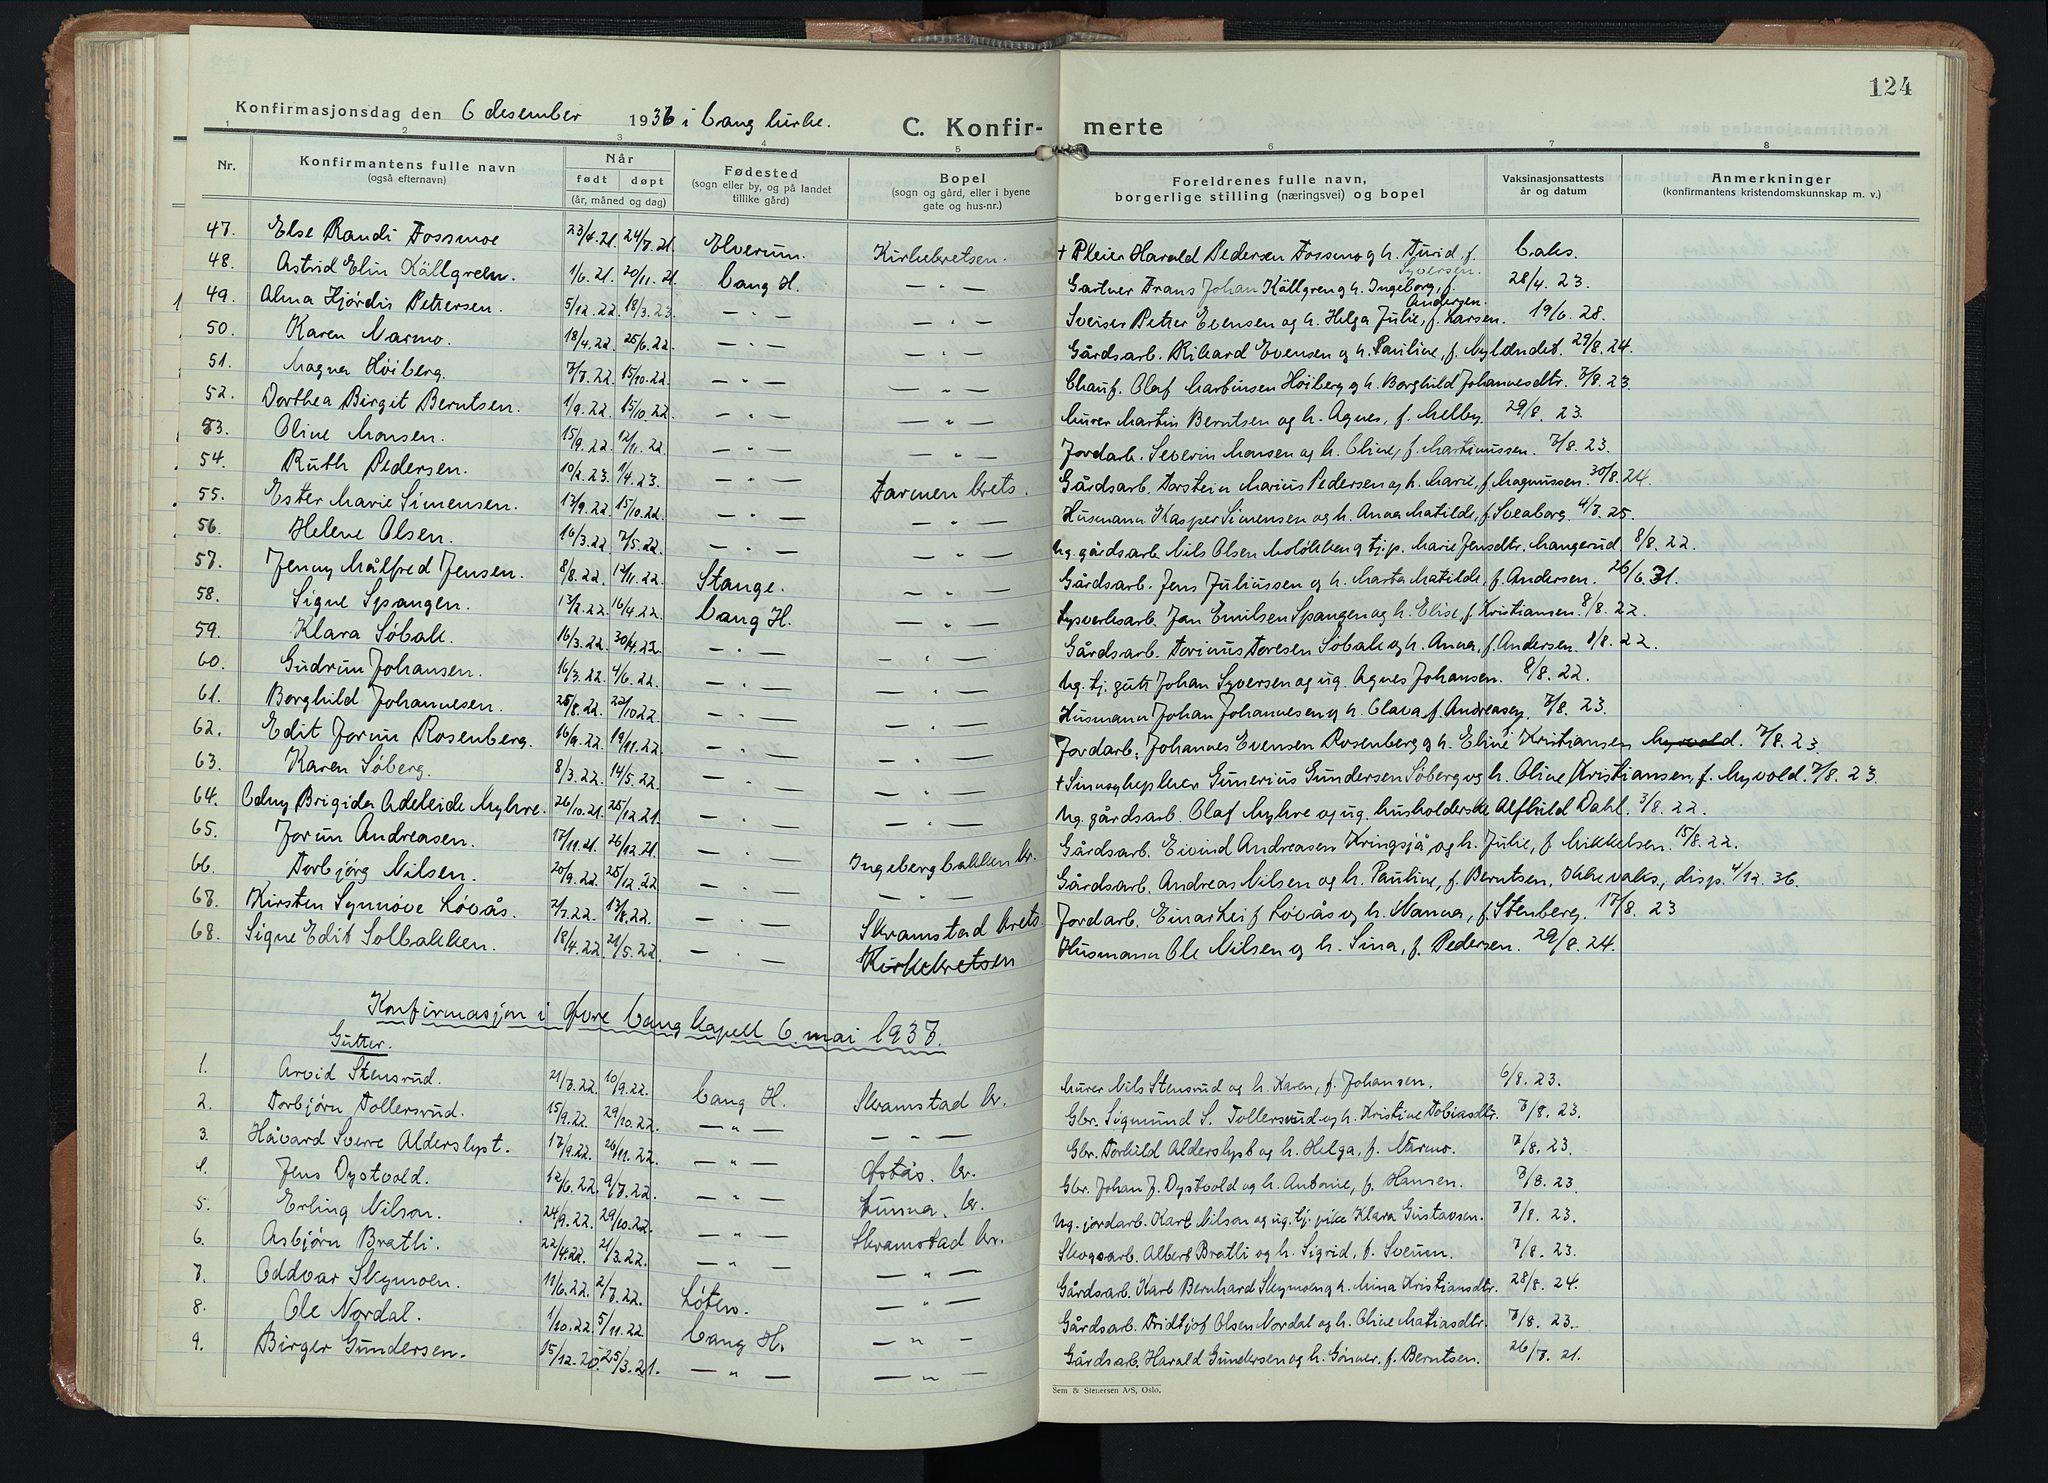 124
Konfirmasjonsdag den 6 desember 1936 i Vang kirke.
C. Konfir- merte
1 2 3 4 5 6 7 8
Nr. Konfirmantens fulle navn (også efternavn) Når født døpt (år, måned og dag) Fødested (sogn eller by, og på landet tillike gård) Bopel (sogn og gård, eller i byene gate og hus-nr.) Foreldrenes fulle navn, borgerlige stilling (næringsvei) og bopel Vaksinasjonsattests år og datum Anmerkninger (konfirmantens kristendomskunnskap m. v.)
47. Else Randi Fossmoe 23/4.21. 24/7.21. Elverum. Kirkekretsen. + Pleier Harald Pedersen Fossmo og h. Turid, f. Syversen. Vaks.
48. Astrid Elin Källgreen. 1/6.21. 20/11.21. Vang H. — " — Gartner Frans Johan Källgren og h. Ingeborg, f. Andersen. 28/4. 23.
49. Alma Hjördis Pettersen. 5/12.22. 18/3.23. — " — — " — Sveiser Petter Evensen og h. Helga Julie, f. Larsen. 19/6. 28.
50. Karen Narmo. 18/4.22. 25/6.22. — " — — " — Gårdsarb. Rikard Evensen og h. Pauline, f. Nylændet. 29/8. 24.
51. Magna Höiberg. 7/7.22. 15/10.22. — " — — " — Chauf. Olaf Martinsen Höiberg og h. Borghild Johannesdtr. 7/8. 23.
52. Dorthea Birgit Berntsen. 1/9.22. 15/10.22. — " — — " — Murer Martin Berntsen og h. Agnes, f. Melby. 29/8. 23.
53. Oline Monsen. 15/9.22. 12/11.22. — " — — " — Jordarb. Severin Monsen og h. Oline, f. Martinussen. 7/8. 23.
54. Ruth Pedersen. 10/2.23. 1/4.23. — " — Farmen krets. Gårdsarb. Torstein Marius Pedersen og h. Marie, f. Magnussen. 30/8.24.
55. Ester Marie Simensen. 13/9.22. 15/10.22. — " — — " — Husmann Kasper Simensen og h. Anna Matilde, f. Sveaborg. 4/7. 25.
56. Helene Olsen. 16/3.22. 7/5.22. — " — — " — Ug. gårdsarb. Nils Olsen Moløkken og tj.p. Marie Jensdtr. Mangerud 8/8. 22.
57. Jenny Målfred Jensen. 8/8.22. 12/11.22. Stange. — " — Gårdsarb. Jens Juliussen og h. Marta Matilde, f. Andersen. 26/6.31.
58. Signe Spangen. 13/2.22. 16/4.22. Vang H. — " — Lysverksarb. Jan Emilsen Spangen og h. Elise, f. Kristiansen. 8/8. 22.
59. Klara Søbak. 16/3.22. 30/4.22. — " — — " — Gårdsarb. Torinus Toresen Søbak og h. Anna, f. Andersen. 8/8. 22.
60. Gudrun Johansen. 16/3.22. 4/6.22. — " — — " — Ug. tj. gutt Johan Syversen og ug. Agnes Johansen. 8/8. 22.
61. Borghild Johannesen. 25/8.22. 22/10.22. — " — — " — Husmann Johan Johannesen og h. Olava, f. Andreasen. 7/8. 23.
62. Edit Jorun Rosenberg. 16/9.22. 19/11.22. — " — — " — Jordarb. Johannes Evensen Rosenberg og h. Eline Kristiansen Myvold. 7/8. 23.
63. Karen Søberg. 8/3.22. 14/5.22. — " — — " — + Sinnsykepleier Gunerius Gundersen Söberg og h. Oline Kristiansen, f. Myvold. 7/8. 23.
64. Odny Brigida Adeleide Myhre. 26/10.21. 25/12.21. — " — — " — Ug. gårdsarb. Olaf Myhre og ug. husholderske Alfhild Dahl. 3/8. 22.
65. Jorun Andreasen. 17/11.21. 26/12.21. — " — Ingebergbakken kr. Gårdsarb. Eivind Andreasen Kringsjå og h. Julie, f. Mikkelsen. 15/8. 22.
66. Torbjörg Nilsen. 20/9.22. 25/12.22 — " — — " — Gårdsarb. Andreas Nilsen og h. Pauline, f. Berntsen. Ikke vaks., disp. 4/12. 36.
67. Kirsten Synnöve Lövås. 2/7.22. 13/8.22. — " — Skramstad krets. Jordarb. Einar Leif Lövås og h. Nanna, f. Stenberg. 17/8. 23
68. Signe Edit Solbakken. 18/4.22. 21/5.22. — " — Kirkekretsen Husmann Ole Nilsen og h. Sina, f. Pedersen. 29/8. 24.
Konfirmasjon i Øvre Vang kapell 6. mai 1937.
Gutter.
1. Arvid Stensrud. 21/7.22. 10/9.22. Vang H. Skramstad kr. Murer Nils Stensrud og h. Karen, f. Johansen. 6/8. 23.
2. Torbjørn Tollersrud. 15/9.22. 29/10.22. — " — — " — Gbr. Sigmund S. Tollersrud og h. Kristine Tobiasdtr. 7/8. 23.
3. Håvard Sverre Alderslyst. 17/9.22. 26/11.22. — " — Østås. kr. Gbr. Torkild Alderslyst og h. Helga, f. Narmo. 7/8. 23.
4. Jens Dystvold. 12/6.22. 9/7.22. — " — Lunna. kr. Gbr. Johan J. Dystvold og h. Antonie, f. Hansen. 7/8. 23.
5. Erling Nilson. 24/9.22. 29/10.22. — " — Skramstad kr. Ug. jordarb. Karl Nilson og ug. tj. pike Klara Gustavsen. 7/8. 23.
6. Asbjörn Bratli. 22/4.22. 21/3.22. — " — — " — Skogsarb. Albert Bratli og h. Sigrid, f. Sveum. 7/8. 23.
7. Oddvar Skymoen. 11/6.22. 2/7.22. Løten. — " — Gårdsarb. Karl Bernhard Skymoen og h. Mina Kristiansdtr. 28/8. 24.
8. Ole Nordal. 1/10.22. 5/11.22. Vang H. — " — Gårdsarb. Fridtjof Olsen Nordal og h. Oline Matiasdtr. 7/8. 23.
9. Birger Gundersen. 15/12.20. 25/3.21. — " — — " — Gårdsarb. Harald Gundersen og h. Gönner, f. Berntsen. 26/7. 21.
Sem & Stenersen A/S, Oslo.